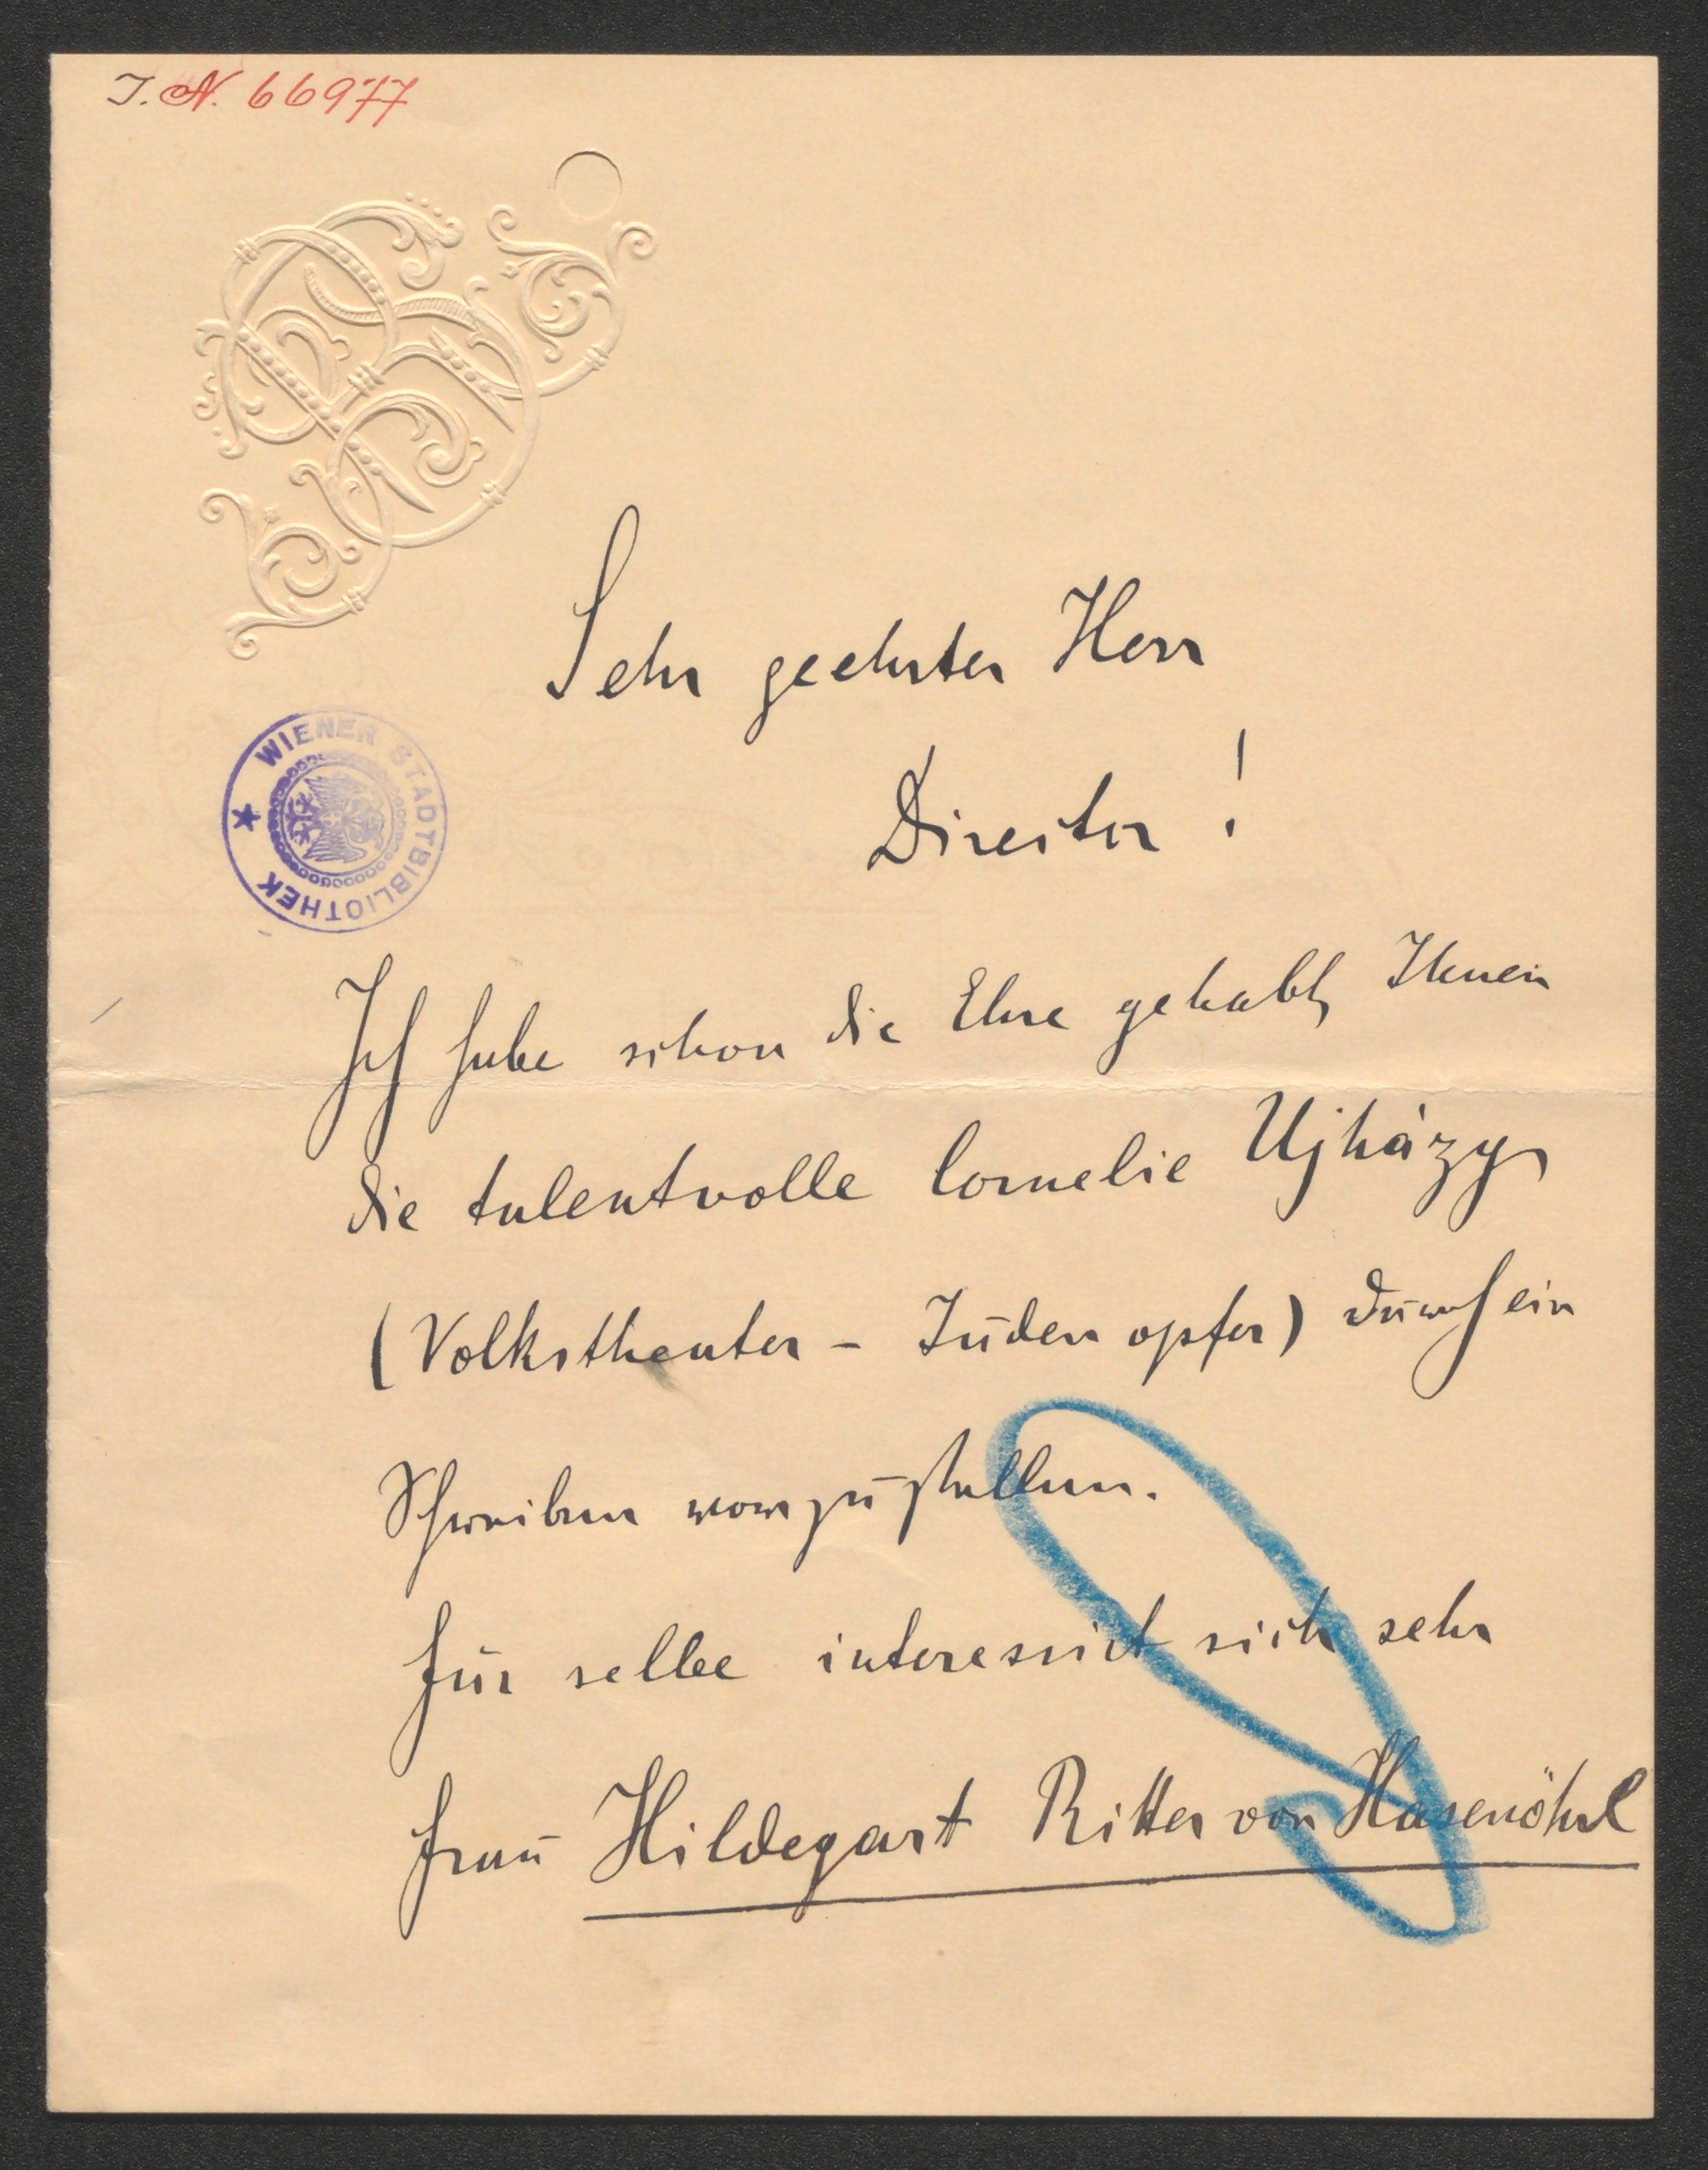 I. N. 66977
Sehr geehrter Herr
Director !
WIENER STADTBIBLIOTHEK
Ich habe schon die Ehre gehabt, Ihnen
die talentvolle Cornelie Ujházy
(Volkstheater - Juden opfer) durch ein
Schreiben vorzustellen.
Für selbe interessirt sich sehr
Frau Hildegart Ritter von Hasenöhrl